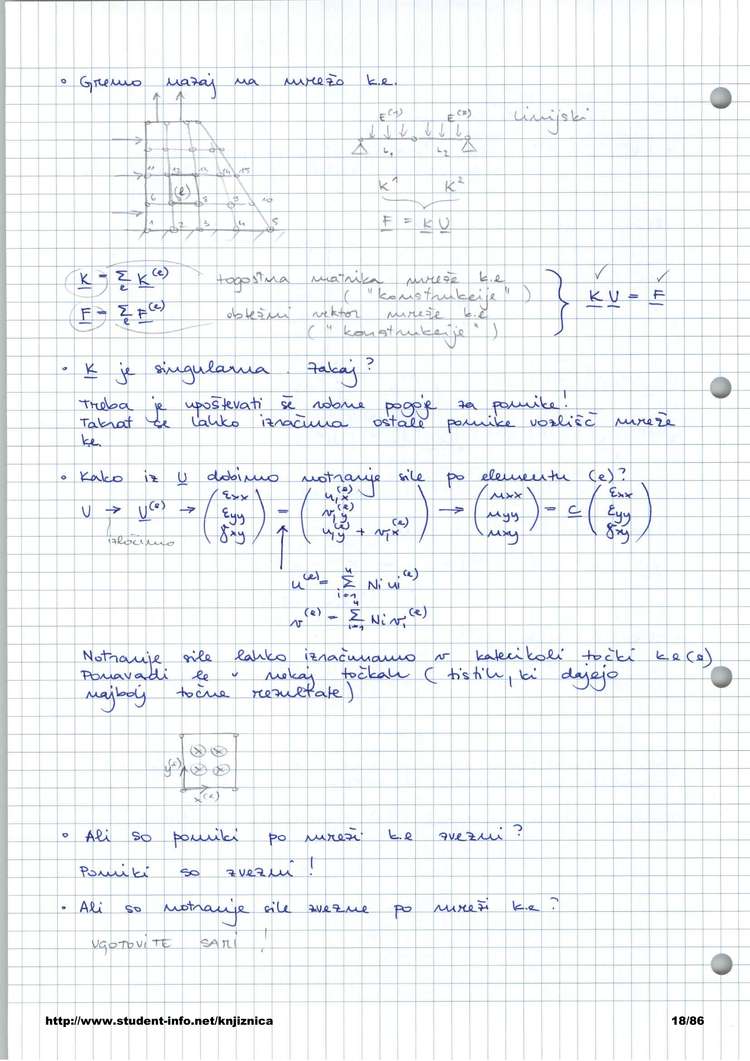 • Gremo nazaj na mrežo k.e.
E⁽¹⁾ E⁽²⁾ linijski
L₁ L₂
11 12 13 14 15
6 (e) 8 9 10
1 2 3 4 5
K¹ K²
F = K U
K = Σₑ K⁽ᵉ⁾ togostna matrika mreže k.e
("konstrukcije")
F = Σₑ F⁽ᵉ⁾ obtežni vektor mreže k.e
("konstrukcije")
K U = F
• K je singularna. Zakaj?
Treba je upoštevati še robne pogoje za pomike!
Takrat se lahko izračuna ostale pomike vozlišč mreže
k.e.
• Kako iz U dobimo notranje sile po elementu (e)?
U → U⁽ᵉ⁾ → (εxx εyy γxy) = (u,x⁽ᵉ⁾ v,y⁽ᵉ⁾ u,y⁽ᵉ⁾ + v,x⁽ᵉ⁾) → (nxx nyy nxy) = C (εxx εyy γxy)
izločimo
u⁽ᵉ⁾ = Σᵢ₌₁⁴ Ni ui⁽ᵉ⁾
v⁽ᵉ⁾ = Σᵢ₌₁⁴ Ni vi⁽ᵉ⁾
Notranje sile lahko izračunamo v katerikoli točki k.e (e)
Ponavadi le v nekaj točkah (tistih, ki dajejo
najbolj točne rezultate)
y⁽ᵉ⁾ x x x x
x⁽ᵉ⁾
• Ali so pomiki po mreži k.e zvezni?
Pomiki so zvezni!
• Ali so notranje sile zvezne po mreži k.e?
UGOTOVITE SAMI!
http://www.student-info.net/knjiznica 18/86